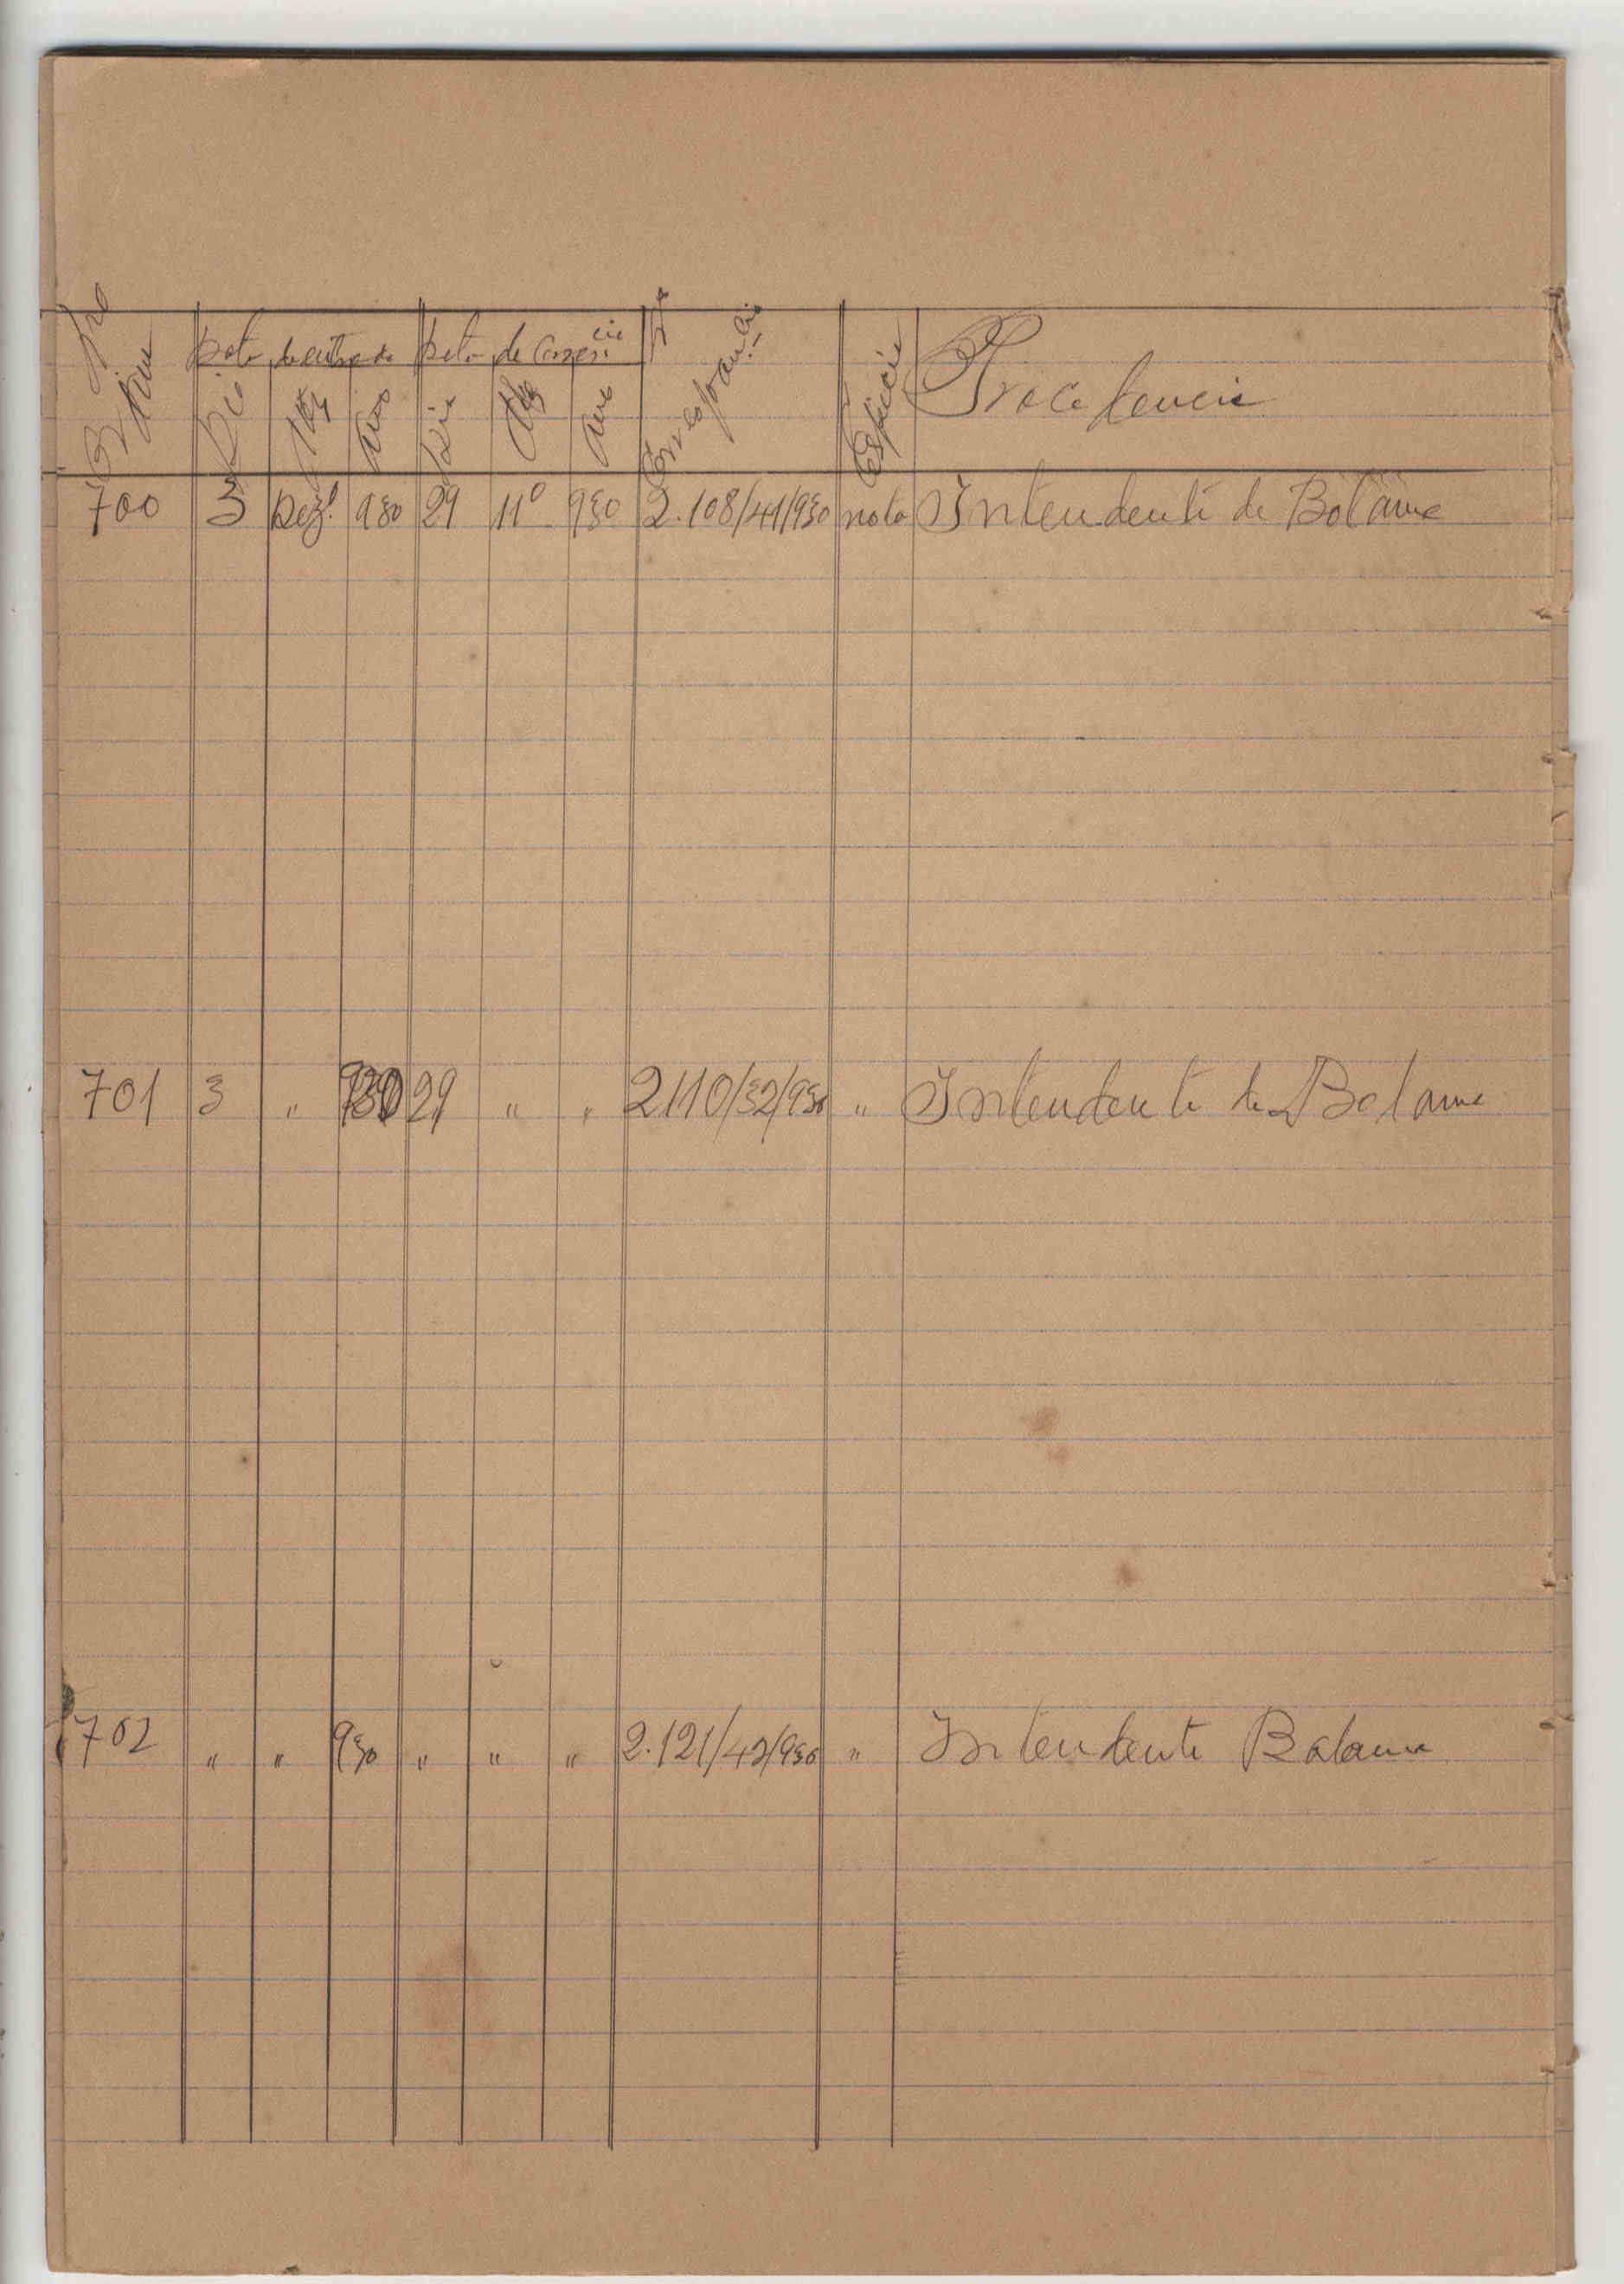 Data de entrada Data de Corresp.cia
Dia Mez Ano Dia Mez Ano Espécie Procedencia
700 3 Dez.º 930 29 11º 930 2.108/41/930 nota Intendente de Bolama
701 3 " 930 29 " " 2110/32/930 " Intendente de Bolama
702 " " 930 " " " 2.121/42/930 " Intendente Bolama